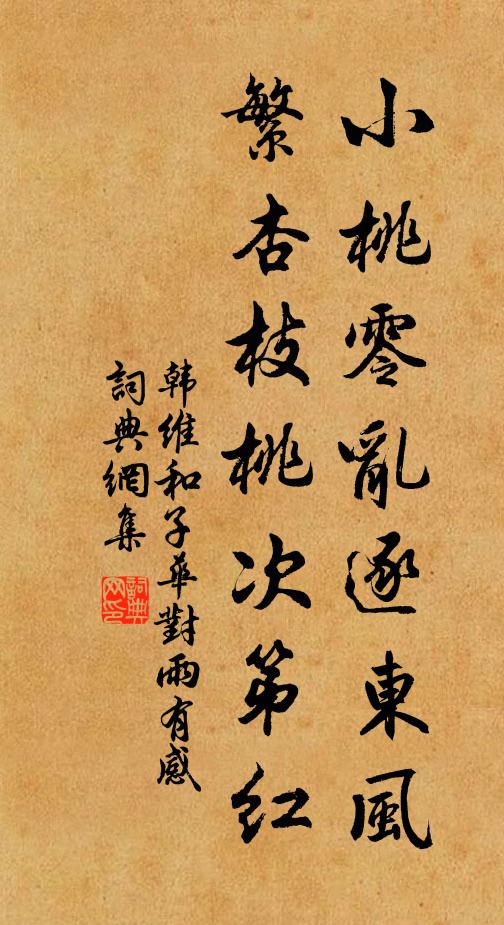 小桃零亂逐東風
繁杏枝桃次第紅
韩維和子華對雨有感
詞典網集
詞典網印